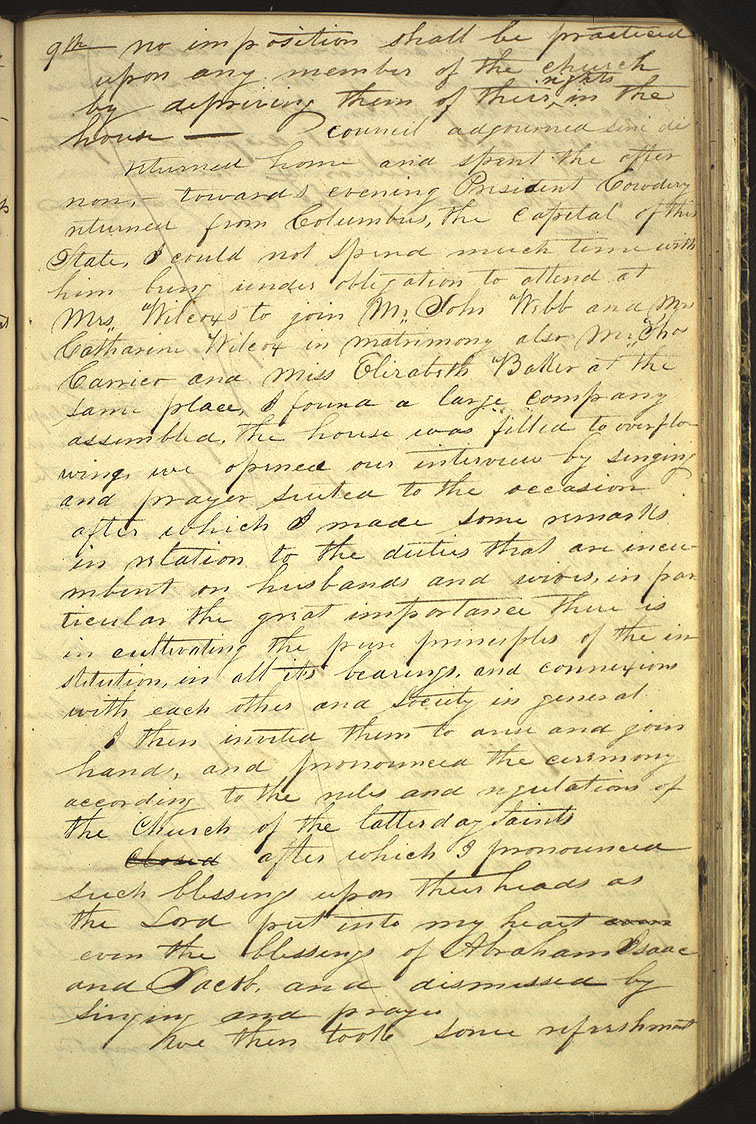 9th no imposition shall be practiced
upon any member of the church
by depriving them of their rights in the
house — council adjourned sini die
returned home and spent the after
noon,— towards evening President Cowdery
returned from Columbus, the capital of this
State, I could not spend much time with
him being under obligation to attend at
Mrs. Wilcoxs to join Mr. John Webb and Mrs
Catharine Wilcox in matrimony also Mr. Tho
Carrico and Miss Elizabeth Baker at the
same place, I found a large company
assembled, the house was filled to overflo-
wing, we opened our interview by singing
and prayer suited to the occasion
after which I made some remarks
in relation to the duties that are incu-
mbent on husbands and wives, in par
ticular the great importance there is
in cultivating the pure principles of the in
stitution, in all its bearings, and connexions
with each other and Society in general
I then invited them to arise and join
hands, and pronounced the ceremony
according to the rules and regulations of
the Church of the Latter day Saints
Closed after which I pronounced
such blessing upon their heads as
the Lord put into my heart
even the blessings of Abraham Isaac
and Jacob, and dismissed by
singing and prayer
we then took some refreshment